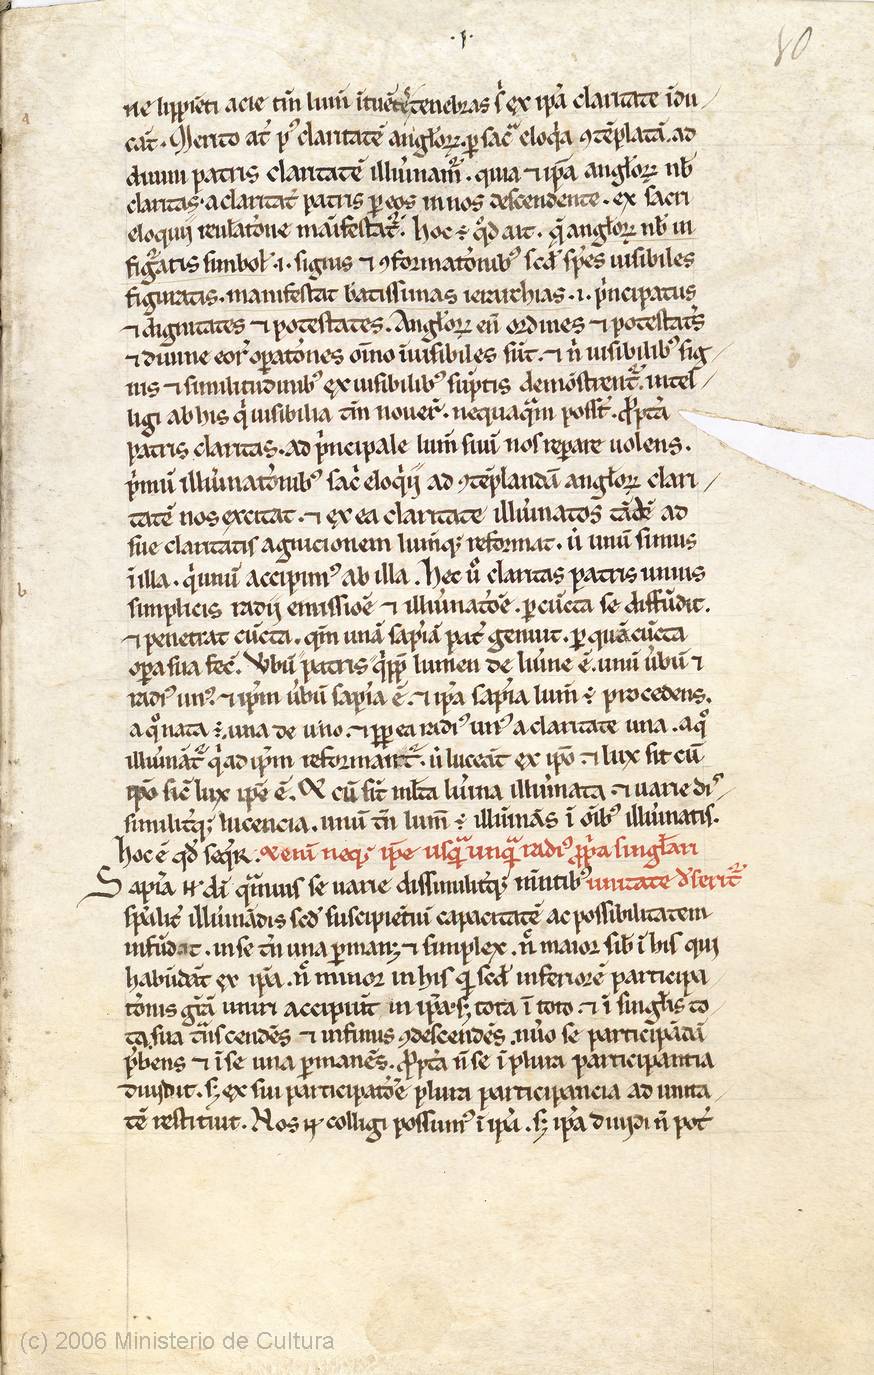 ·I·
10
a
ne lippienti acie tm̄ lum̄ ītuēti tenebras s; ex ipā claritate īdu
cāt. Merito at̄ p⁹ claritatē angl̄oꝝ. ꝑ sac̄ eloq̄a ꝯtēplatā. ad
diuini patris claritatē illumīam̄. quia ⁊ ipā angl̄oꝝ nb̄
claritas. a claritate patris ꝑ eos in nos descendente. ex sacri
eloquij reuelat̄one maīfestat̄. hoc ē q̄d ait. q̄ angl̄oꝝ nb̄ in
figuratis simbol̄ .i. signis ⁊ ꝯformat̄onib⁹ scd̄ sp̄es uisibiles
figuratis. manifestat bātissimas ierarchias .i. p̄ncipatus
⁊ dignitates ⁊ potestates. Angl̄oꝝ eni ordines ⁊ potestates
⁊ diuine eoꝝ oꝑat̄ones oīno īuisibiles sūt. ⁊ n̄ uisibilib⁹ sig
nis ⁊ similitudinib⁹ ex uisibilib⁹ sūptis demōstrent̄. intel
ligi ab his q̄ uisibilia tm̄ nouer̄. nequaq̄m poss̄t. Ꝓpt̄a
patris claritas. ad p̄ncipale lum̄ suū nos reparare uolens.
p̄mū illumīat̄onib⁹ sac̄ eloq̄ij ad ꝯtēplandā angl̄oꝝ clari
tatē nos excitat. ⁊ ex ea claritate illumīatos tādē ad
sue claritatis agnicionem lum̄q; reformat. ut unū simus
ī illa. q̄ unū accipim⁹ ab illa. Hec u̇ claritas patris unius
simplicis radij emissiōē ⁊ illumīat̄oē. ꝑ cūcta se diffūdit.
b
⁊ penetrat cūcta. qm̄ unā sapīā pat̄ genuit. ꝑ quā cūcta
oꝑa sua fec̄. Vbū patris q̄ppe lumen de lumīe ē. unū ūbū ⁊
radi⁹ un⁹. ⁊ ipm̄ ūbū sapīa ē. ⁊ ipā sapīa lum̄ ē procedens.
a q̄ nata ē. una de uno. ⁊ ꝓp ea radi⁹ un⁹ a claritate una. a q̄
illumīat̄ q̄ ad ipm̄ reformant̄. ut luceāt ex ipō ⁊ lux sit cū
ipō sic̄ lux ipē ē. Et cū sīt ml̄ta lumīa illumīata ⁊ uarie di
similit̄q; lucencia. unū tn̄ lum̄ ē illumīās ī oīb⁹ illumīatis.
hoc ē qd̄ seq̄R. Et enī neq; ipē usq̄ unq̄ radi⁹ ꝓp̄a singl̄ari
Sapīa .n. dī q̄muis se uarie dissimilit̄q; mentib⁹ unitate d̄serit̄
sp̄alit̄ illumīādis scd̄ suscipientiū capacitatē ac possibilitatem
infūdat. in se tn̄ una ꝑmanz ⁊ simplex. n̄ maior sib̄ ī his qui
habūdāt ex ipā. n̄ minor in his qui scd̄ inferiorē participa
t̄onis gr̄am uniri accipiūt in ipā. s; tota ī toto. ⁊ ī singl̄is to
ta. sua t̄nscendēs ⁊ infimis ꝯdescendēs. uno se participādā
p̄bens ⁊ ī se una ꝑmanēs. Ꝓpt̄a n̄ se ī plura participantia
diuidit. s; ex sui participat̄oē plura participancia ad unita
tē restituit. Nos .n. colligi possum⁹ ī ipā. s; ipā diuidi n̄ pot̄
(c) 2006 Ministerio de Cultura